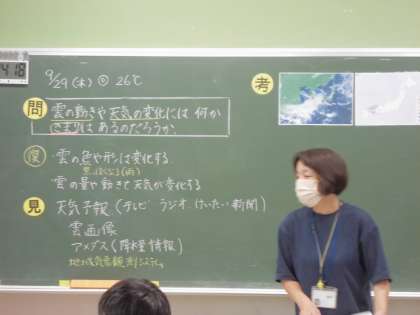 9/29(木)◎ 26℃
問 雲の動きや天気の変化には 何か
きまりは あるのだろうか。
・雲の色や形は変化する
・雲の量や動きで天気が変化する
見 天気予報(テレビ ラジオ けいたい 新聞)
雲画像
アメダス(降水量情報)
地域気象観測システム
考